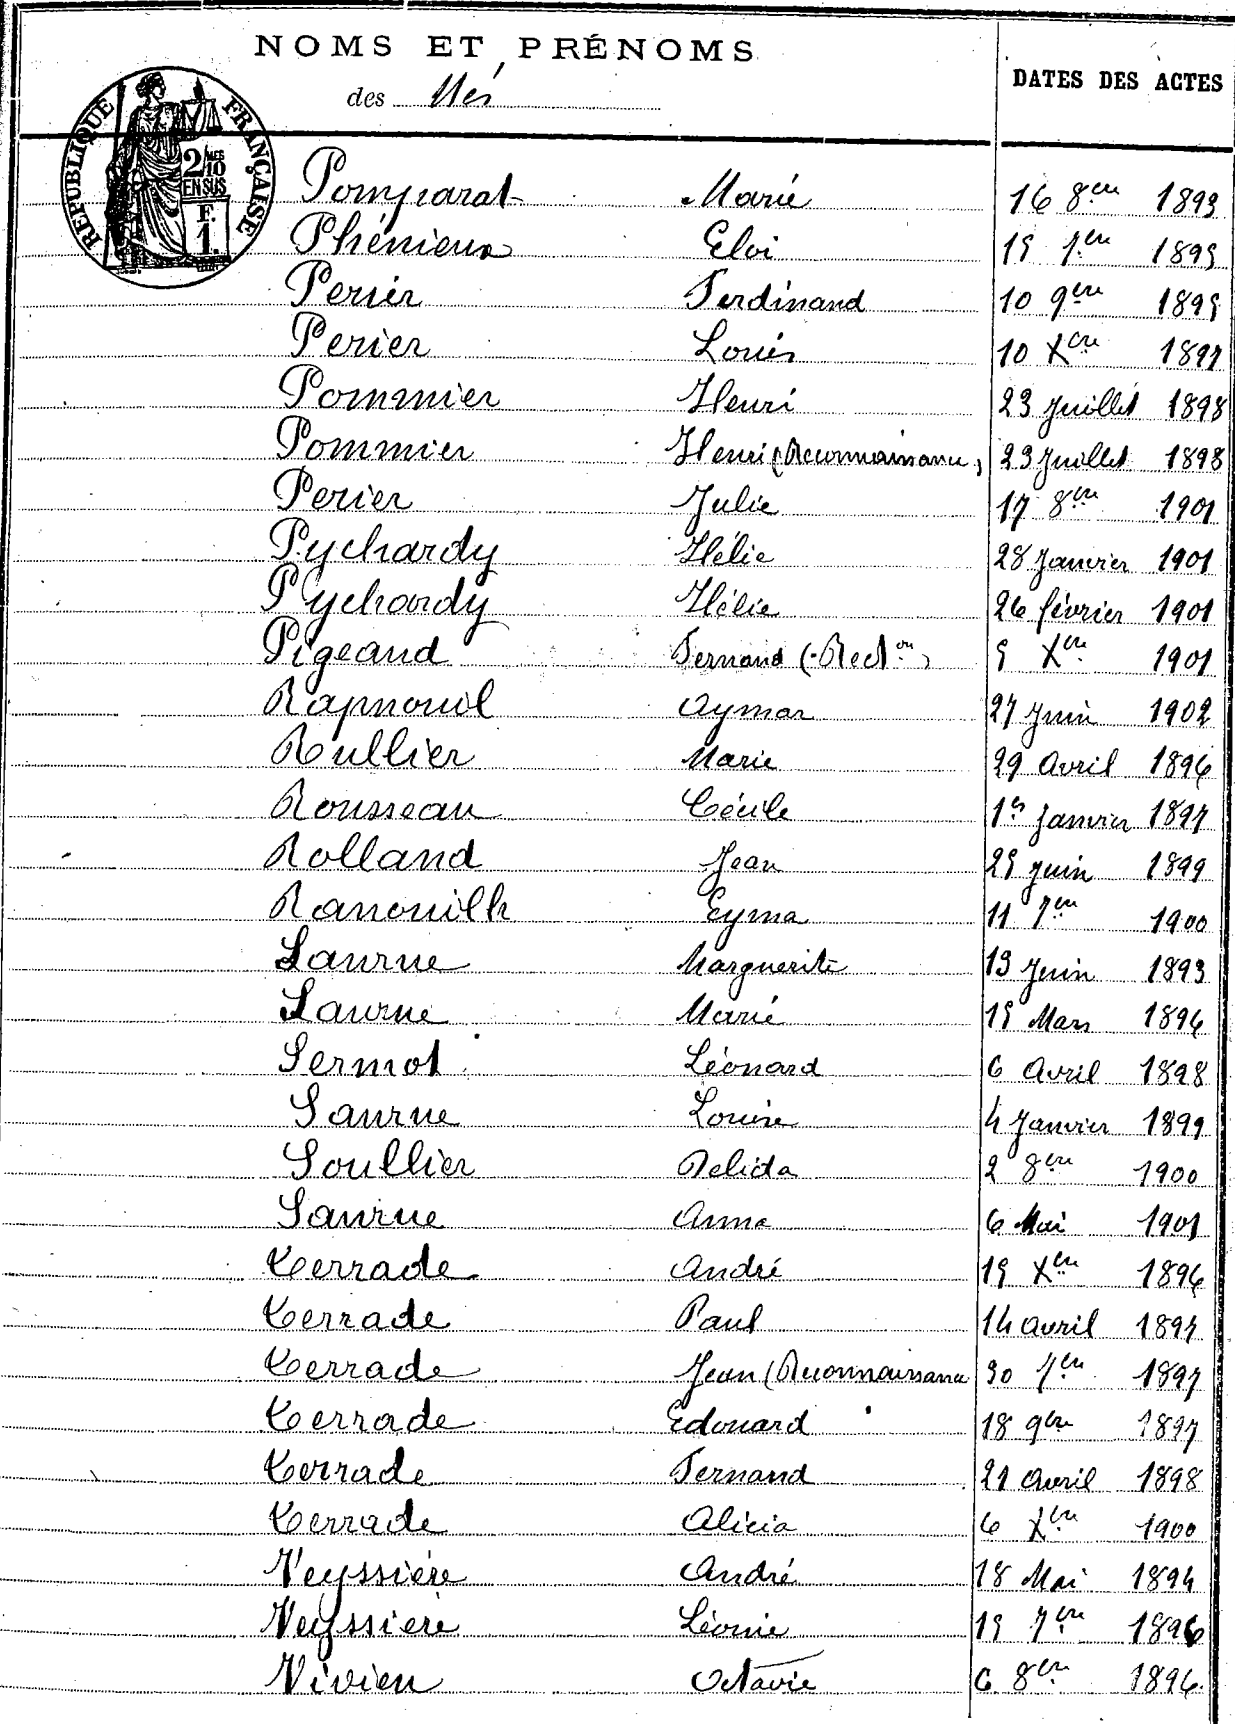 NOMS ET PRÉNOMS
des Nés
DATES DES ACTES
RÉPUBLIQUE FRANÇAISE
2/10 MES
EN SUS
F.
1.
Pomparat Marie 16 8bre 1893
Phénieux Eloi 15 7bre 1895
Perier Ferdinand 10 9bre 1895
Perier Louis 10 Xbre 1897
Pommier Henri 23 Juillet 1898
Pommier Henri (Reconnaissance) 23 Juillet 1898
Perier Julie 17 8bre 1901
Pychardy Hélie 28 Janvier 1901
Pychardy Hélie 26 février 1901
Pigeaud Fernand (Recton) 5 Xbre 1901
Rapnouil Aymar 27 Juin 1902
Roullier Marie 29 Avril 1896
Rousseau Cécile 1er Janvier 1897
Rolland Jean 25 Juin 1899
Ranouilh Eyma 11 7bre 1900
Saurue Marguerite 13 Juin 1893
Saurue Marie 15 Mars 1896
Sermot Léonard 6 Avril 1898
Saurue Louise 4 Janvier 1899
Soullier Délida 2 8bre 1900
Saurue Anna 6 Mai 1901
Terrade André 15 Xbre 1896
Terrade Paul 14 avril 1897
Terrade Jean (Reconnaissance 30 7bre 1897
Terrade Edouard 18 9bre 1897
Terrade Fernand 21 Avril 1898
Terrade Alicia 6 Xbre 1900
Veyssière André 18 Mai 1894
Veyssière Léonie 15 7bre 1896
Vivien Octavie 6 8bre 1896